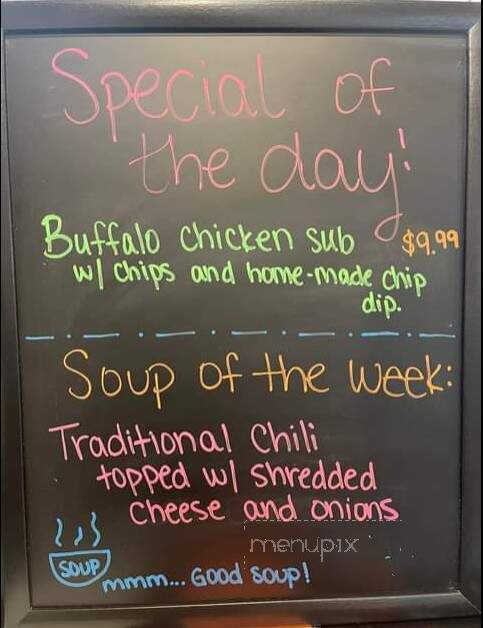 Special of
the day!
Buffalo chicken sub $9.99
w/ chips and home-made chip
dip.
Soup of the week:
Traditional Chili
topped w/ shredded
cheese and onions
menupix
SOUP
mmm... Good soup!